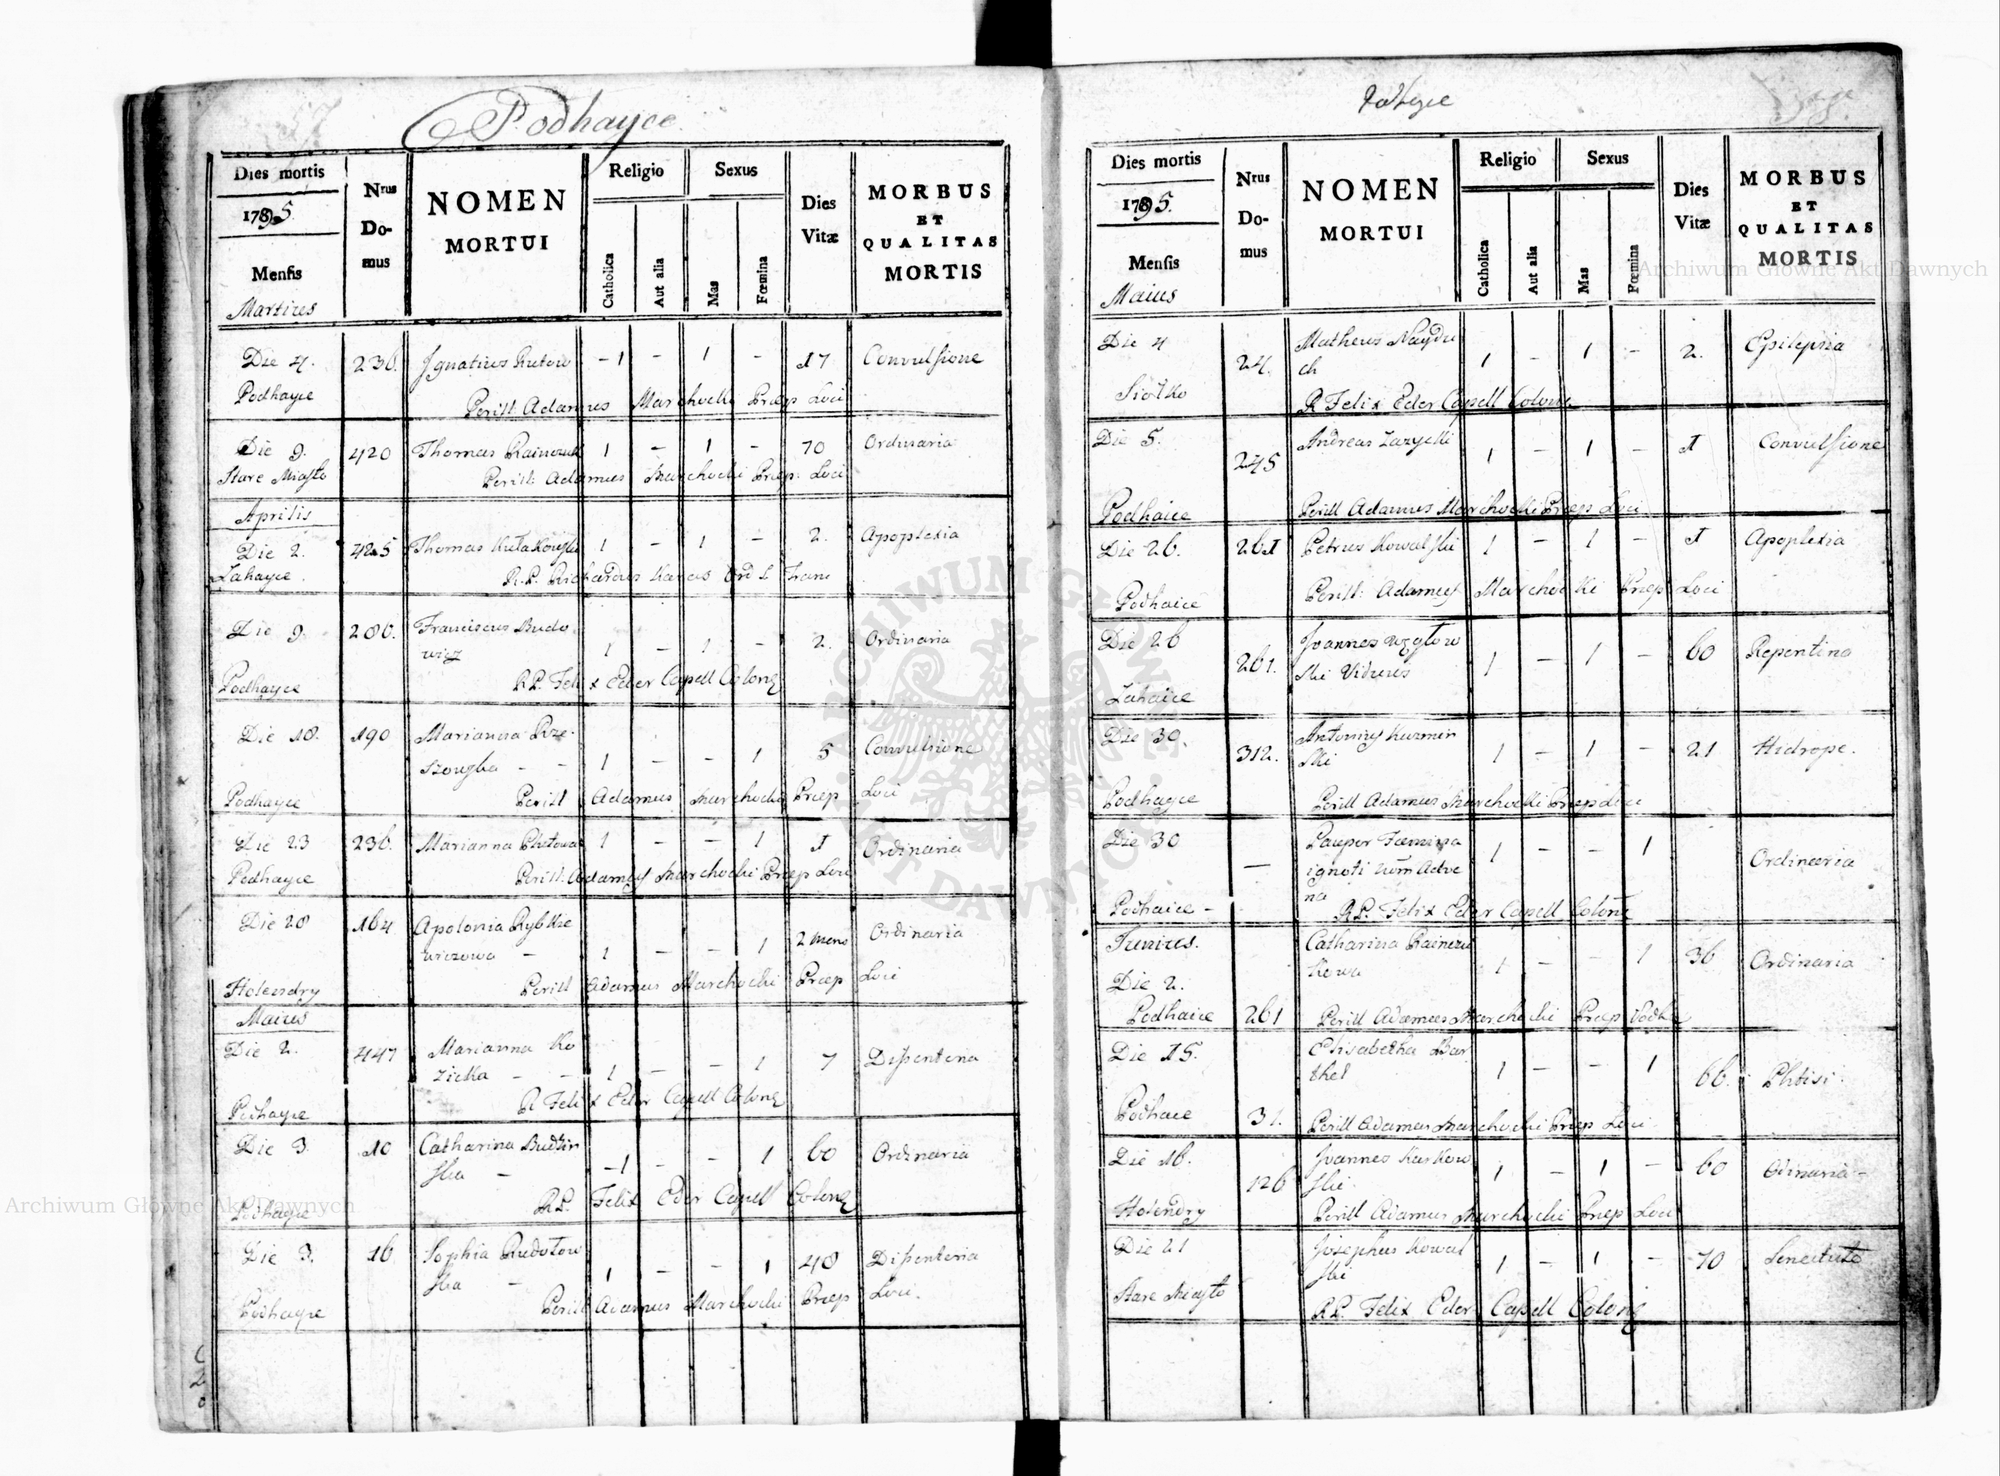 Podhayce
Dies mortis
1795.
Mensis
Martius
Nrus Domus
NOMEN
MORTUI
Religio
Catholica
Aut alia
Sexus
Mas
Fœmina
Dies Vitæ
MORBUS
ET
QUALITAS
MORTIS
Die 4. 236. Ignatius - 1 - 1 - 17 Convulsione
Podhayce Perill Adamus Marchocki Præp Loci
Die 9. 420 Thomas 1 - 1 - 70 Ordinaria
Stare Miasto Perill: Adamus Marchocki Præp: Loci
Aprilis
Die 2. 425 Thomas 1 - 1 - 2. Apoplexia
Zahayce. R.P. Richardus Ord S Franc
Die 9. 286. Franciscus Budo
wicz 1 - 1 - 2. Ordinaria
Podhayce R.P. Felix Eder Capell Coloniæ
Die 18. 190 Marianna
- - 1 - - 1 5 Convulsione
Podhayce Perill Adamus Marchocki Præp Loci
Die 23 236. Marianna 1 - - 1 1 Ordinaria
Podhayce Perill: Adamus Marchocki Præp Loci
Die 28 164 Apolonia Rybkie
wiczowa - 1 - - 1 2 mens Ordinaria
Holendry Perill Adamus Marchocki Præp Loci
Maius
Die 2. 447 Marianna Ko
zicka - - 1 - - 1 7 Dissenteria
Podhayce R Felix Eder Capell Coloniæ
Die 3. 10 Catharina Budzin
ska - - 1 - - 1 60 Ordinaria
Podhayce R.P. Felix Eder Capell Coloniæ
Die 3. 16 Sophia Rudolow
ska - 1 - - 1 48 Dissenteria
Podhayce Perill Adamus Marchocki Præp Loci.
Dies mortis
1795.
Mensis
Maius
Nrus Domus
NOMEN
MORTUI
Religio
Catholica
Aut alia
Sexus
Mas
Fœmina
Dies Vitæ
MORBUS
ET
QUALITAS
MORTIS
Die 4 24. Matheus Naydu
ch 1 - 1 - 2. Epilepsia
Siołko R Felix Eder Capell Coloniæ
Die 5. 245 Andreas Zazycki 1 - 1 - 1 Convulsione
Podhaice Perill Adamus Marchocki Præp Loci
Die 26. 261 Petrus Kowalski 1 - 1 - 1 Apoplexia
Podhaice Perill: Adamus Marchocki Præp Loci
Die 26 261. Joannes Węglow
ski Viduus 1 - 1 - 60 Repentina
Zahaice
Die 30. 312. Antonius Kuzmin
ski 1 - 1 - 21 Hidrope.
Podhayce Perill Adamus Marchocki Præp Loci
Die 30 - Pauper Fæmina
ignoti Adve
na 1 - - 1 Ordinaria
Podhaice - R.P. Felix Eder Capell Coloniæ
Junius.
Die 2. Catharina
kowa 1 - - 1 36 Ordinaria
Podhaice 261 Perill Adamus Marchocki Præp
Die 15. Elisabetha Bar
thel 1 - - 1 66. Phtisi.
Podhaice 31. Perill Adamus Marchocki Præp Loci
Die 16. 126 Joannes Kaskow
ski 1 - 1 - 60 Odinaria -
Holendry Perill Adamus Marchocki Præp Loci
Die 21 Josephus Kowal
ski 1 - 1 - 70 Senectute
Stare Miasto R.P. Felix Eder Capell Coloniæ
Archiwum Główne Akt Dawnych
Archiwum Główne Akt Dawnych
ARCHIWUM GŁÓWNE AKT DAWNYCH